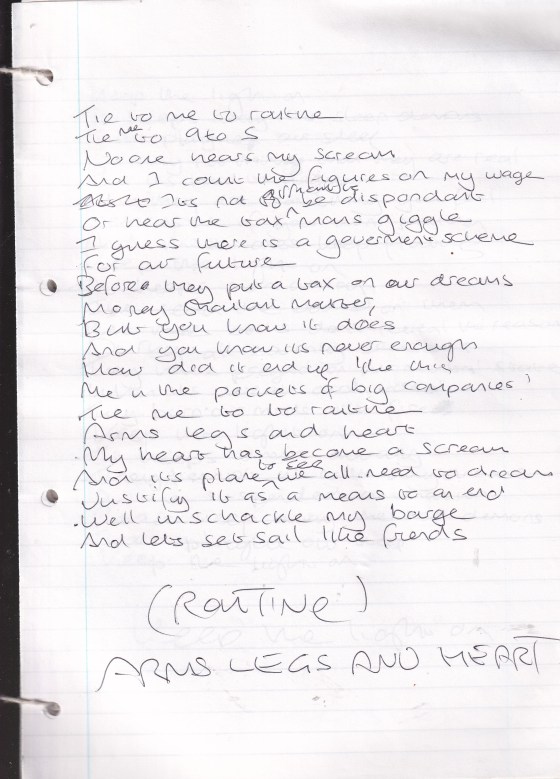 Tie to me to routine
Tie me to 9 to 5
No one hears my scream
And I count the figures on my wage
Its not to be dispondant
Or hear the tax mans giggle
I guess there is a goverment scheme
For our future
Before they put a tax on our dreams
Money shallant matter,
But you know it does
And you know its never enough
How did it end up like this
Me in the pockets of big companies!
Tie me to to routine
Arms legs and heart
My heart has become a scream
And its plane to see we all need to dream
Justifiy it as a means to an end
Well unschackle my barge
And lets set sail like friends
(ROUTINE)
ARMS LEGS AND HEART